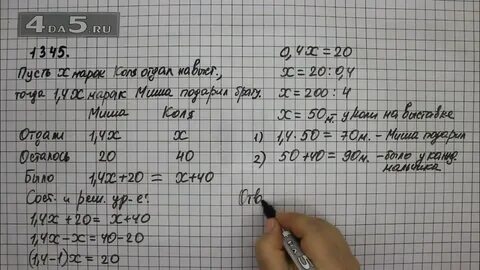 4DA5.RU
1345.
Пусть x марок Коля отдал на выст.,
тогда 1,4x марок Миша подарил брату.
Миша Коля
Отдали 1,4x x
Осталось 20 40
Было 1,4x+20 = x+40
Сост. и реш. ур-е:
1,4x+20 = x+40
1,4x-x = 40-20
(1,4-1)x = 20
0,4x = 20
x = 20:0,4
x = 200:4
x = 50м. у Коли на выставке
1) 1,4·50 = 70м. - Миша подарил
2) 50+40 = 90м. - было у кажд.
мальчика
Отв
4DA5